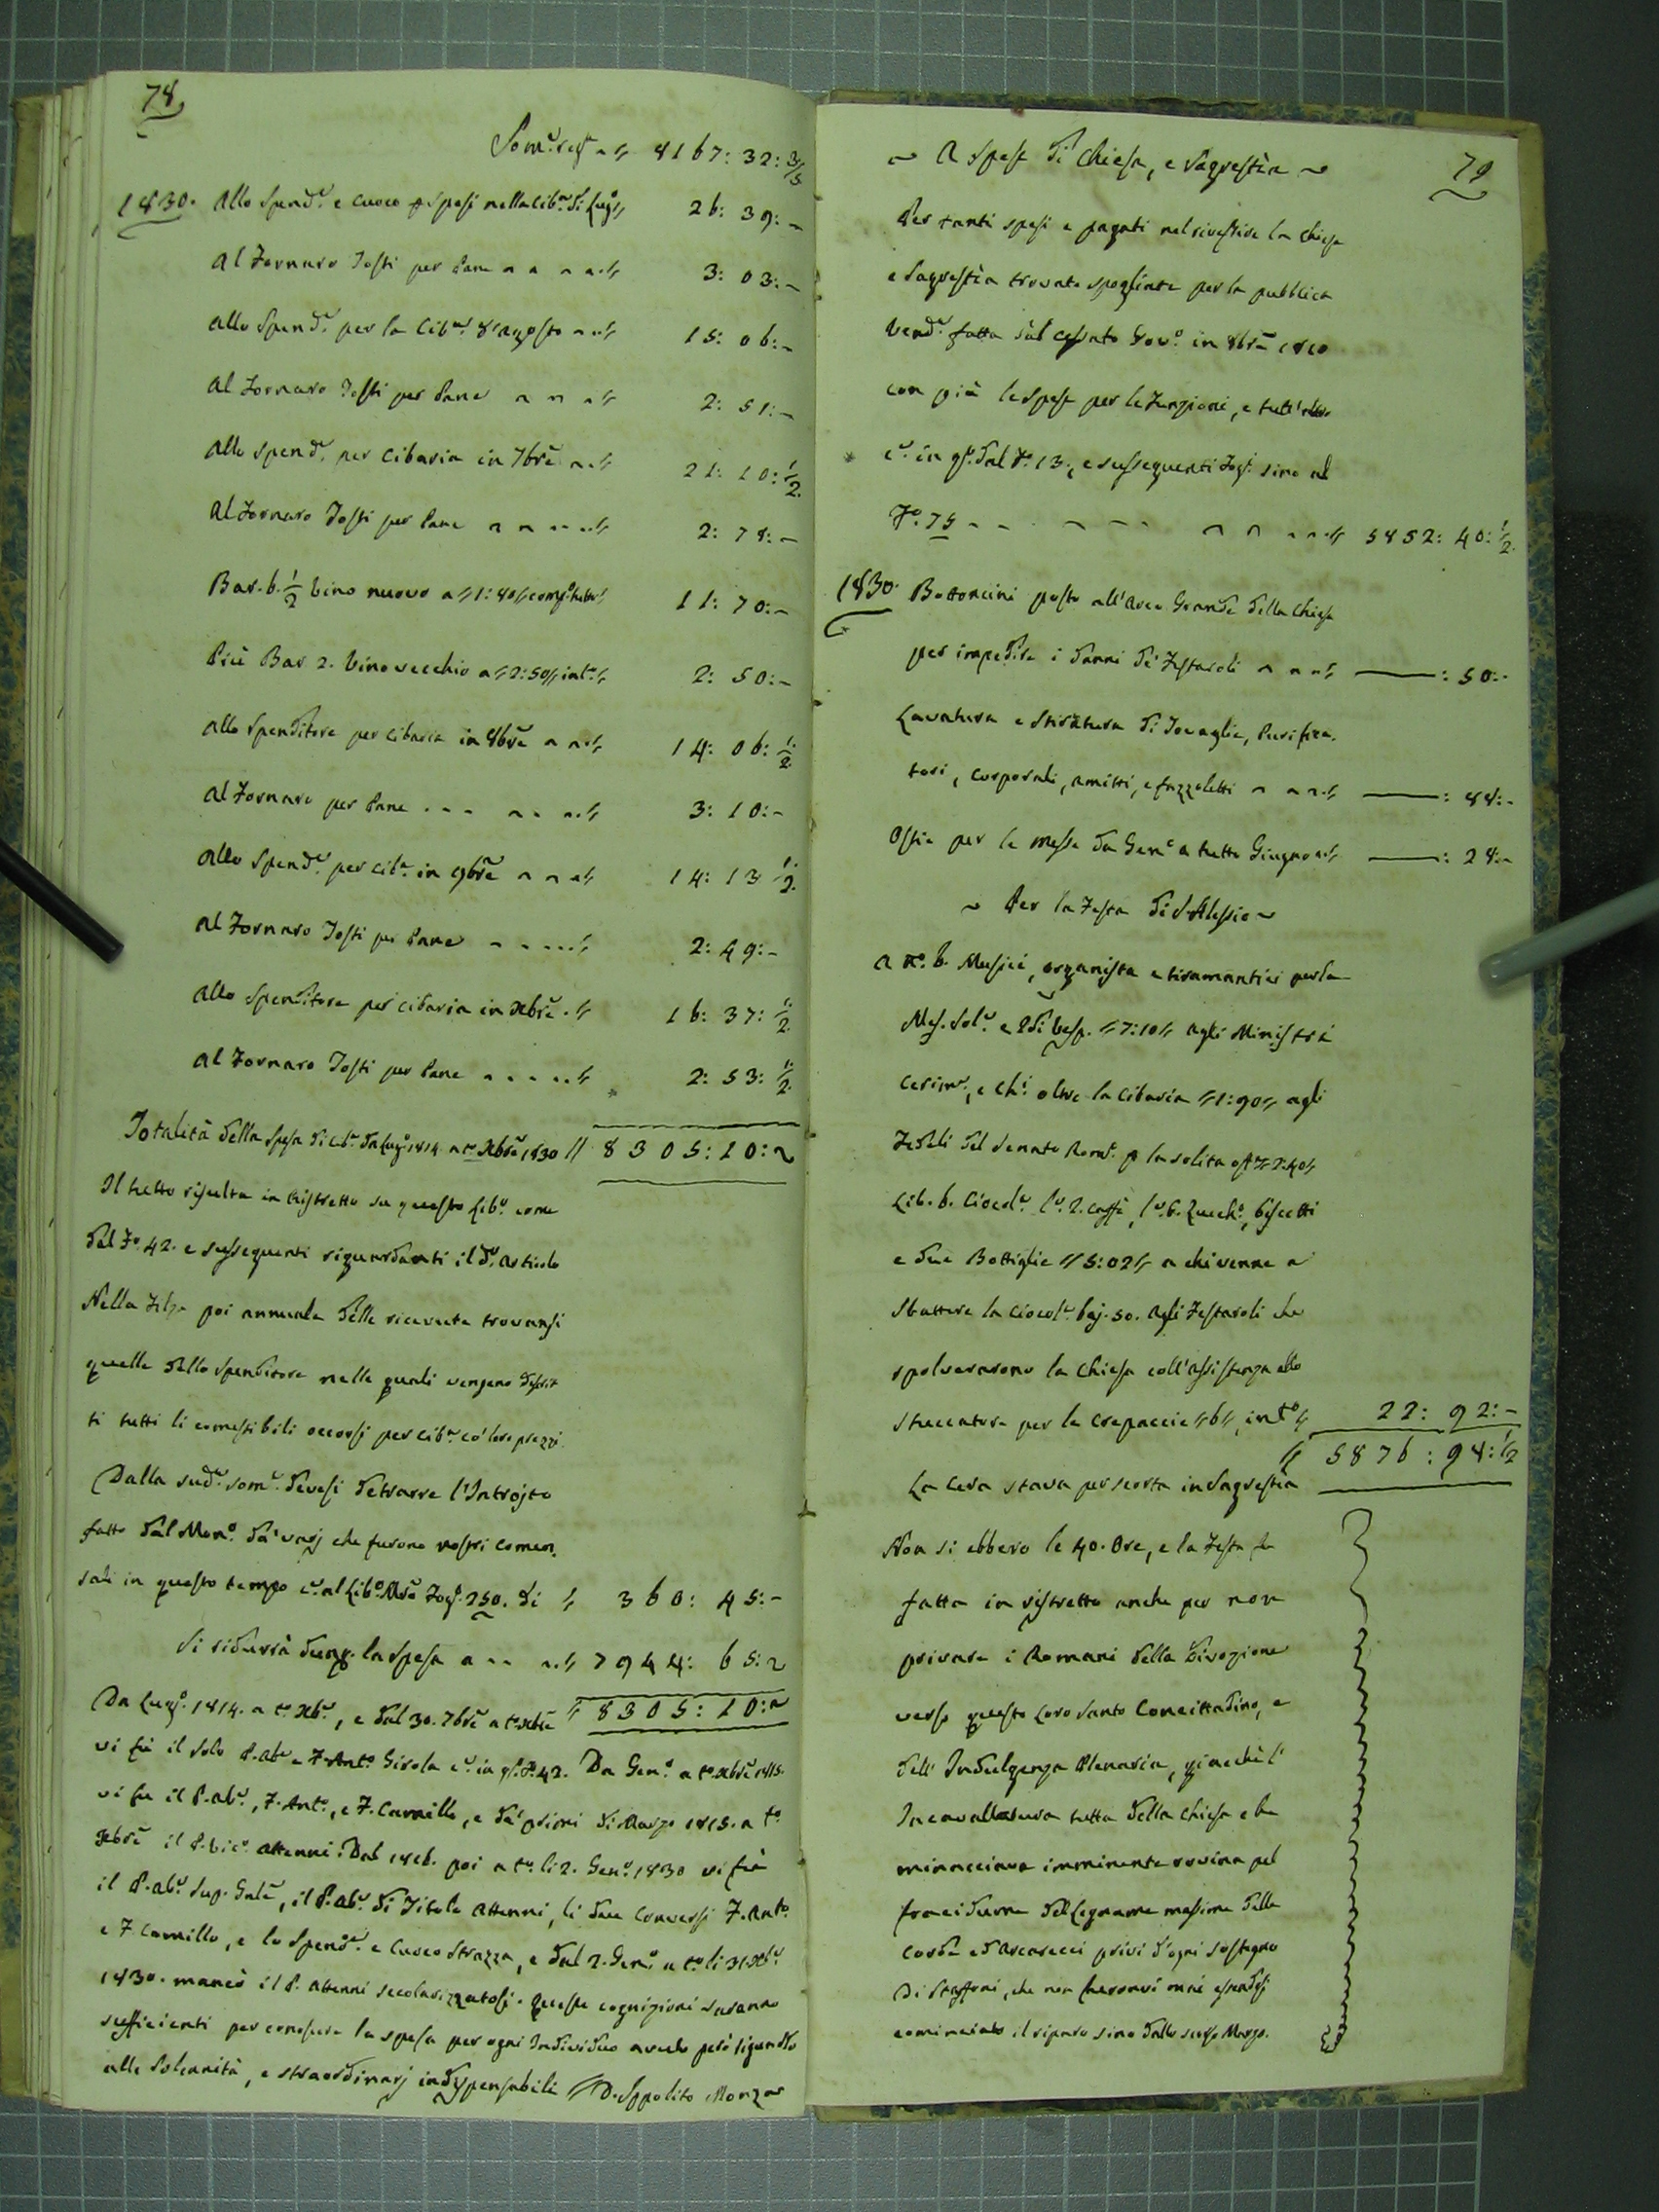 78
Som.ª 8167: 32: 3/5
1830. Allo Spend.e e Cuoco p spesi nella Cib.ª di Lug.º 26: 39: ~
Al Fornaro Tosti per Pane 3: 03: ~
Allo Spend.e per la Cib.ª d'Agosto 15: 06: ~
Al Fornaro Tosti per Pane 2: 51: ~
Allo Spend.e per Cibaria in 7bre 21: 10: 1/2
Al Fornaro Tosti per Pane 2: 78: ~
Bar. 6. 1/2 Vino nuovo a 1: 80 11: 70: ~
Più Bar 2. Vino vecchio a 2: 50 2: 50: ~
Allo Spenditore per Cibaria in 8bre 14: 06: 1/2
Al Fornaro per Pane 3: 10: ~
Allo Spend.e per Cib.ª in 9bre 14: 13 1/2
Al Fornaro Tosti per Pane 2: 49: ~
Allo Spenditore per Cibaria in Xbre 16: 37: 1/2
Al Fornaro Tosti per Pane 2: 53: 1/2
Totalità della Spesa di Cib.ª da Lug.º 1814 a t.º Xbre 1830 8305: 10: ~
Il tutto risulta in Ristretto su questo Lib.º come
dal F.º 42. e susseguenti riguardanti il d.º Articolo
Nella Filza poi annuale delle ricevute trovansi
quelle dello Spenditore nelle quali vengono descrit
ti tutti li comestibili occorsi per Cib.ª co' loro prezzi.
Dalla sud.ª som.ª devesi detrarre l'Introjto
fatto dal Mon.º da' varj che furono nostri Comen,
sali in questo tempo al Lib.º Fog. 250. di 360: 45: ~
Si ridurrà dunq. la Spesa a 7944: 65: ~
Da Lug.º 1814. a t.º Xbre, e dal 30. 7bre a t.º Xbre 8305: 10: ~
vi fù il solo P. Ab.e e F. Ant.º Girola c.e in q.º F.º 42. Da Gen.º a t.º Xbre 1815.
vi fu il P. Ab.e, F. Ant.º, e F. Camillo, e da' primi di Marzo 1815. a t.º
Xbre il P. Vic.º Attenni. Dal 1816. poi a t.º li 2. Gen.º 1830 vi fù
il P. Ab.e Sup. Gale, il P. Ab.e di Titolo Attenni, li due Conversi F. Ant.º
e F. Camillo, e lo Spend.e e Cuoco Strazza, e dal 2. Gen.º a t.º li 31. Xbre
1830. mancò il P. Attenni secolarizzatosi. Queste cognizioni saranno
sufficienti per conoscere la spesa per ogni Individuo avuto però riguardo
alle Solennità, e straordinarj indispensabili D. Ippolito Monza
79
~ A Spese di Chiesa, e Sagrestìa ~
Per tanti spesi e pagati nel rivestire la Chiesa
e Sagrestìa trovate spogliate per la pubblica
Vend.ª fatta dal cessato Gov.º in 8bre 1810
con più le spese per le Funzioni, e tutt'altro
c.e in q.º dal F.º 13., e susseguenti Fog. sino al
F.º 75 5852: 40: 1/2
1830. Bottoncini posto all'Arco Grande della Chiesa
per impedire i danni de' Festaroli : 50: ~
Lavatura e stiratura di Tovaglie, Purifica.
tori, Corporali, Amitti, e fazzoletti : 88: ~
Ostie per le Messe da Gen.º a tutto Giugno : 28: ~
~ Per la Festa di S. Alessio ~
A n.º 6. Musici, organista e tiramantici per la
Mes. Sol.e e 2di Vesp. 7: 10 Agli Ministri
Cerim.e, e Chi. oltre la Cibaria 1: 90 Agli
Fedeli del Senato Rom.º p la solita 2: 40
Lib. 6. Ciocol.e l.e 2. Caffè, l.e 6. Zucch.º, biscotti
e due Bottiglie 5: 02 a chi venne a
sbattere la Ciocol.e baj. 50. Agli Festaroli che
spolverarono la Chiesa coll'assistenza allo
stuccatore per le Crepaccie 6 in t.º 22: 92: ~
5876: 98: 1/2
La Cera stava per scorta in Sagrestìa
Non si ebbero le 40. Ore, e la Festa fu
fatta in ristretto anche per non
privare i Romani della Divozione
verso questo loro Santo Concittadino, e
dell'Indulgenza Plenaria, giacchè l'
Incavallatura tutta della Chiesa
minacciava imminente rovina pel
fracidume del Legname massime delle
Corde ed Arcarecci privi d'ogni sostegno
di Staffoni, che non furonvi mai essendosi
cominciato il riparo sino dallo scorso Marzo.